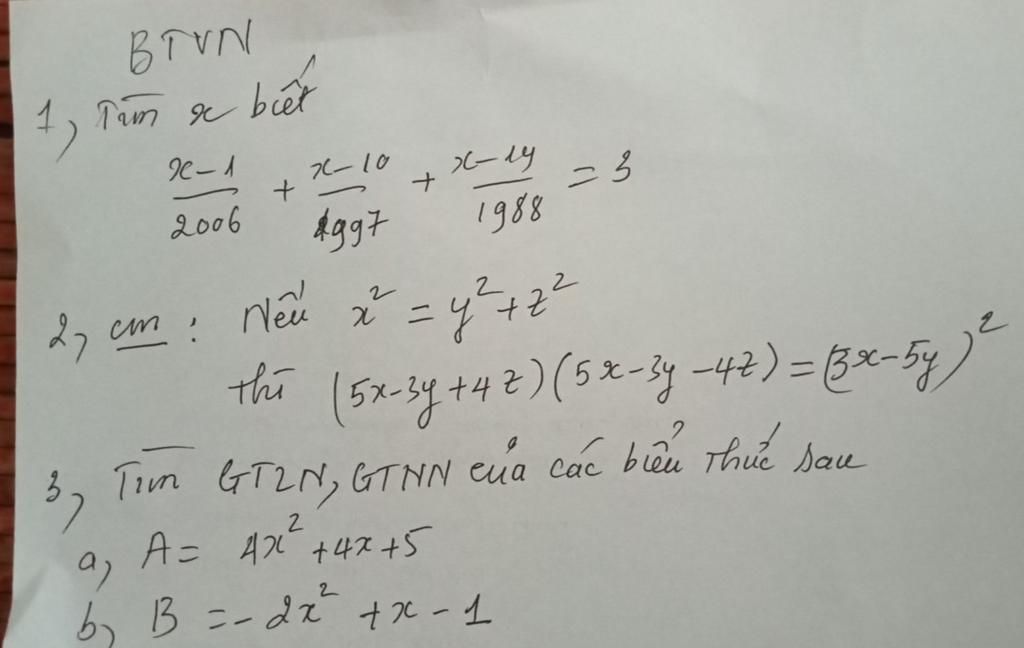 BTVN
1, Tìm x biết
x-1/2006 + x-10/1997 + x-19/1988 = 3
2, cm: Nếu x² = y² + z²
thì (5x-3y+4z)(5x-3y-4z) = (3x-5y)²
3, Tìm GTLN, GTNN của các biểu thức sau
a, A = 4x² + 4x + 5
b, B = -2x² + x - 1